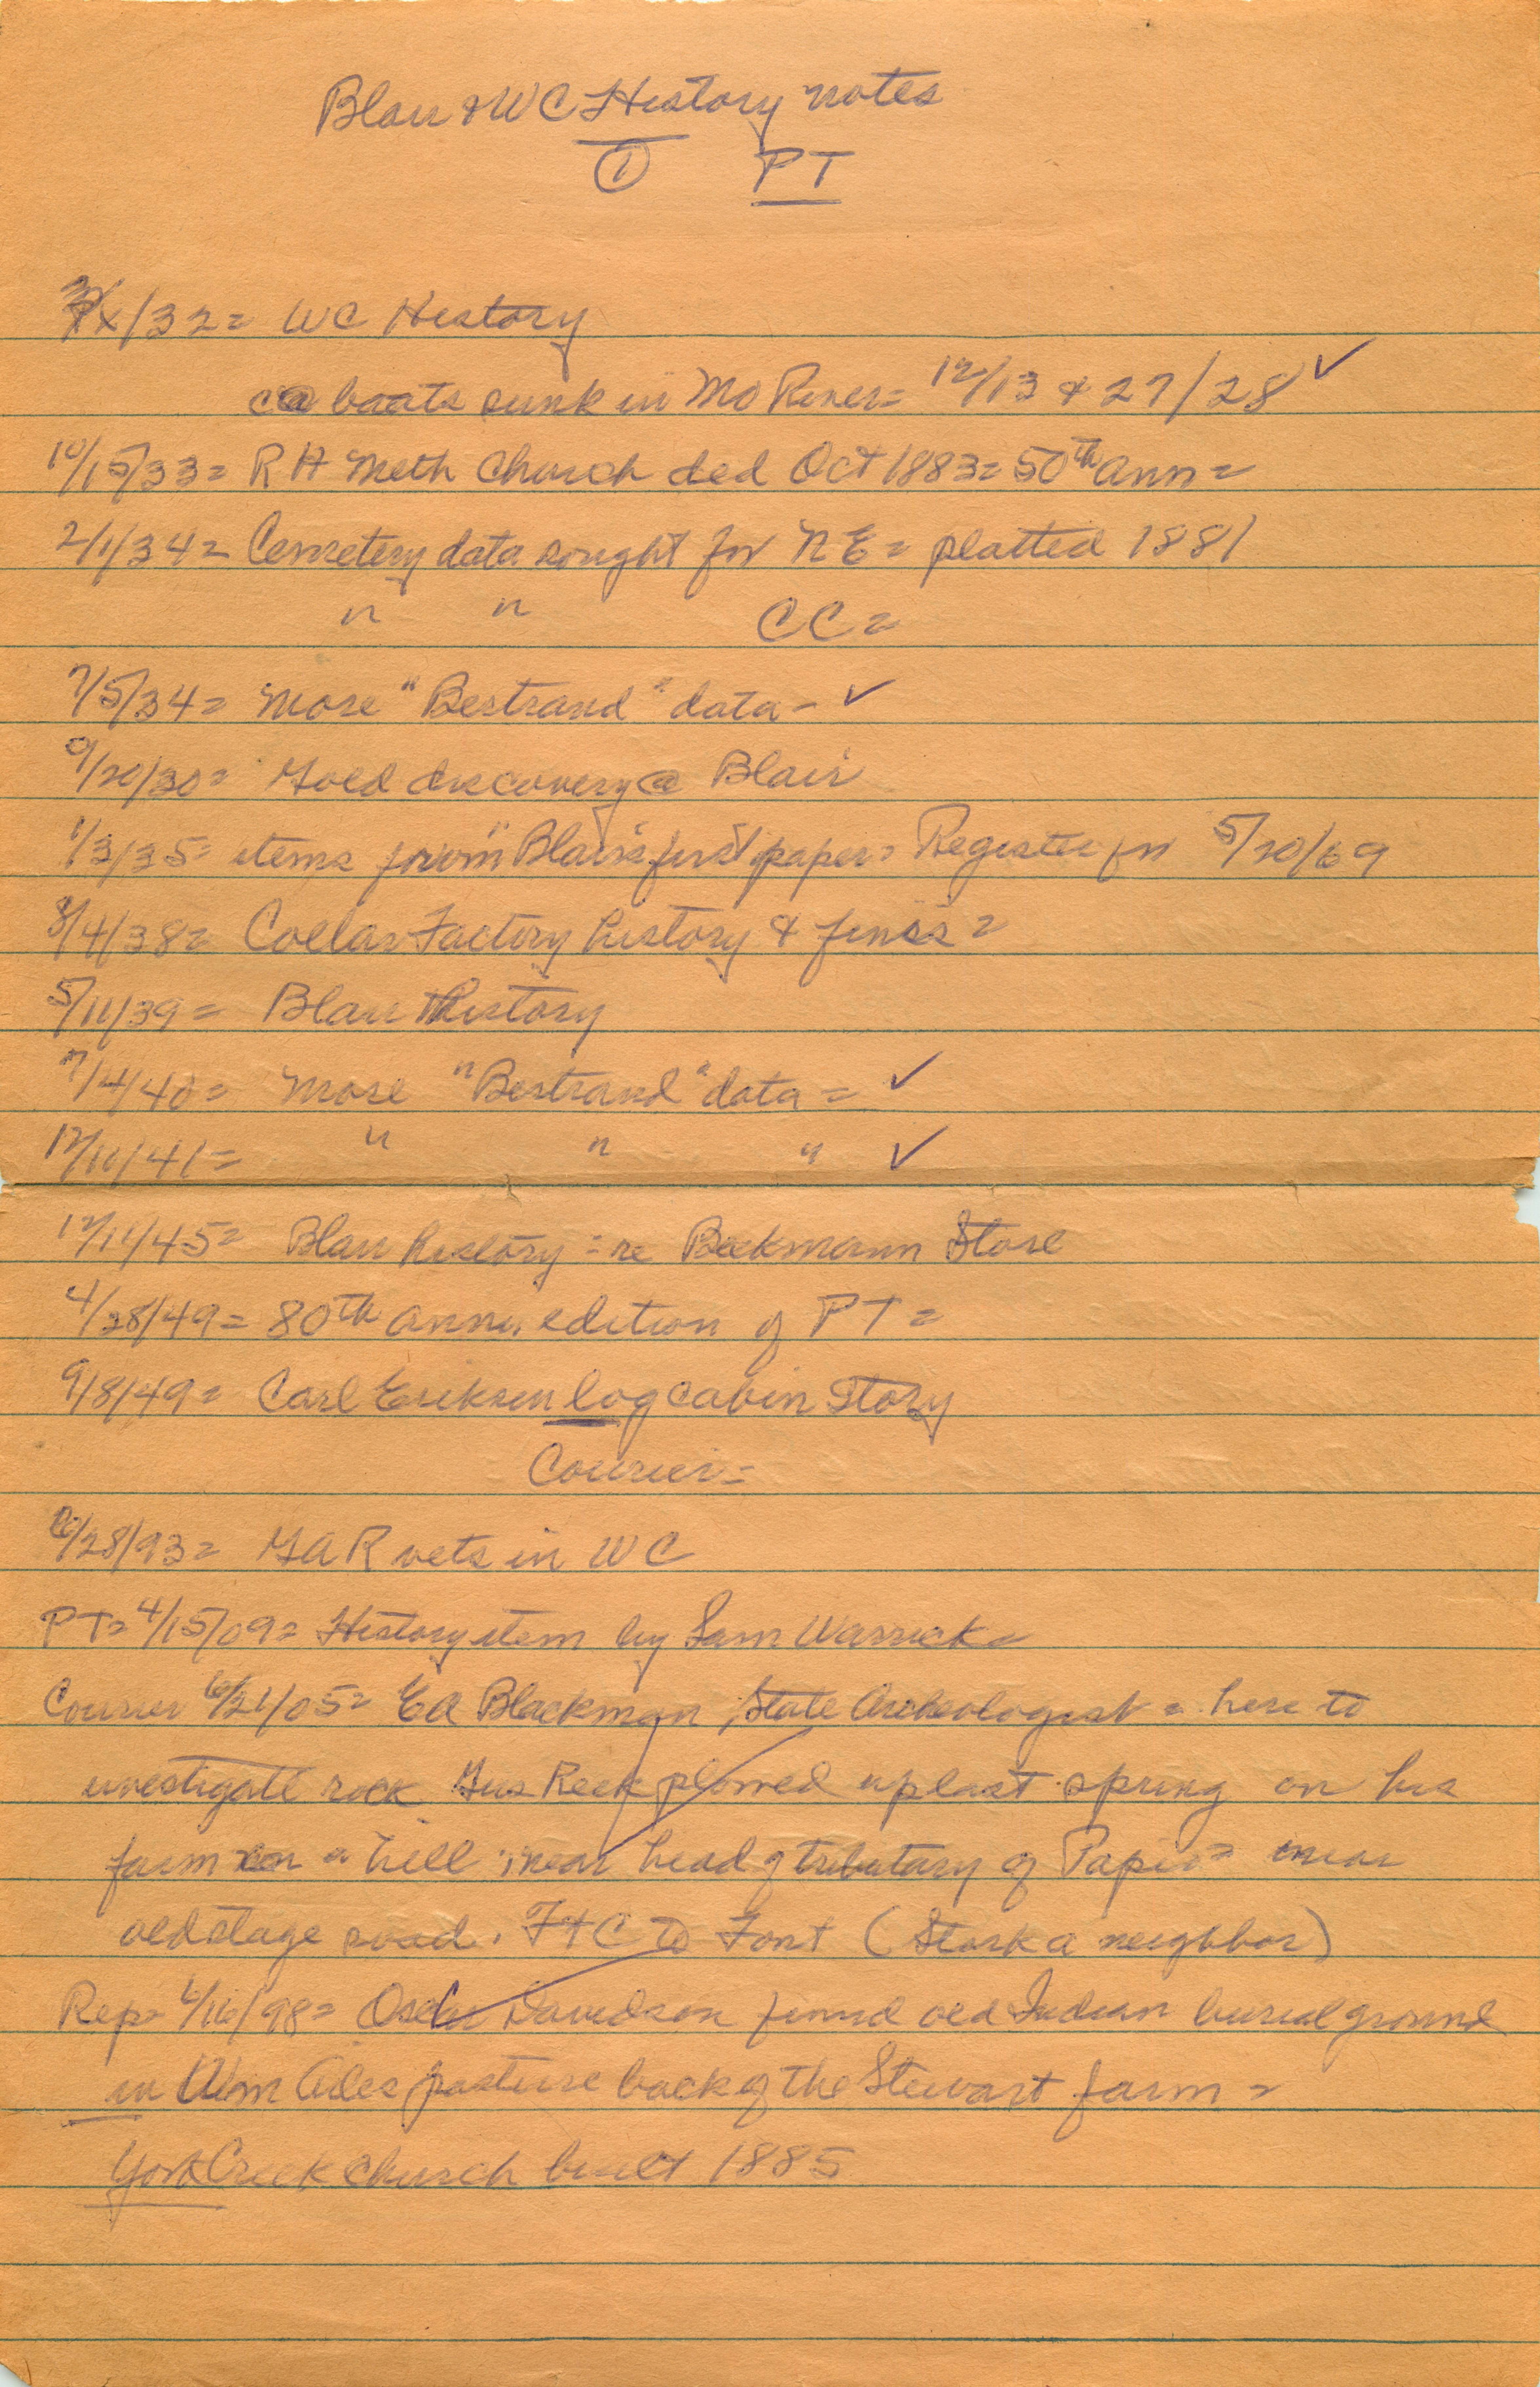 Blair & WC History notes
① PT
/32= WC History
boats sunk in Mo River= 12/13 & 27/28 ✓
10/15/33= R H Meth Church ded Oct 1883= 50th ann=
2/1/34= Cemetery data sought for N E= platted 1881
" " CC=
7/5/34= More "Bertrand" data- ✓
9/20/30= Gold discovery @ Blair
1/3/35= items from "Blair's first paper= Register for 5/20/69
8/4/38= Collar Factory history &
5/11/39= Blair History
7/4/40= More "Bertrand" data= ✓
12/11/41= " " " ✓
12/11/45= Blair history = re Beekmann Store
4/28/49= 80th anni. edition of PT=
9/8/49= Carl Eriksen log cabin story
Courier=
/28/93= GAR vets in WC
PT= 4/15/09= History item by Sam Warrick=
Courier 6/21/05= Ed Blackman, State Archeologist = here to
investigate rock Gus Reek plowed up last spring on his
farm on a hill near head of tributary of Papio= near
old stage road. Ft C to Font (Stork a neighbor)
Rep= 6/16/98= Davidson found old Indian burial ground
in Wm Ailes pasture back of the Stewart farm=
York Creek church built 1885